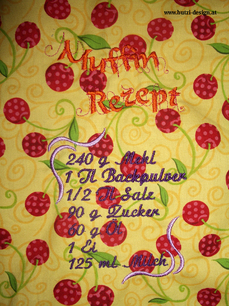 www.hutzi-design.at
Muffin
Rezept
240 g Mehl
1 Tl Backpulver
1/2 Tl Salz
90 g Zucker
60 g Öl
1 Ei
125 ml Milch